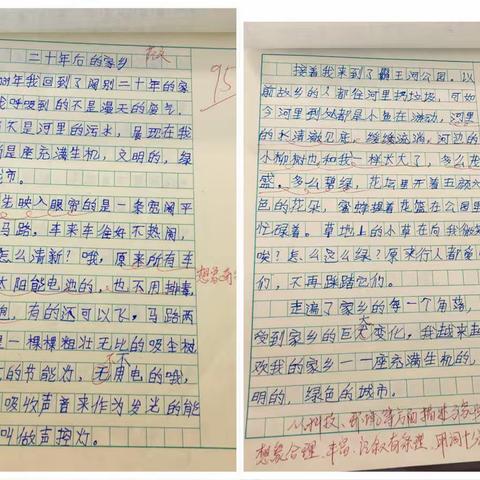 二十年后的家乡
95
年我回到了阔别二十年的家
我呼吸到的不是漫天的臭气,
不是河里的污水,呈现在我
的是座充满生机,文明的,绿
市。
映入眼帘的是一条宽阔平
马路,车来车往好不热闹,
怎么清新?哦,原来所有车
太阳能电池的,也不用排毒
,有的还可以飞,马路两
是一棵棵粗壮无比的吸尘树
的节能灯,不用电的哦,
吸收声音来作为发光的能
叫做声控灯。
接着我来到了霸王河公园。以
前故乡的人都往河里扔垃圾,可如
今河里到处都是小鱼在游动,河里
的水清澈见底,缓缓流淌,河边的
小柳树也和我一样长大了,多么茂
盛,多么碧绿,花坛里开着五颜六
色的花朵,蜜蜂提着花篮在公园里
忙碌着。草地上的小草在向我微
唉?怎么这么绿?原来行人都
们,不再踩踏它们。
走遍了家乡的每一个角落,
受到家乡的巨大变化,我越来越
欢我的家乡——座充满生机的,
明的,绿色的城市。
以科技、环保等方面描述
想象合理、丰富、记叙有条理、用词十分